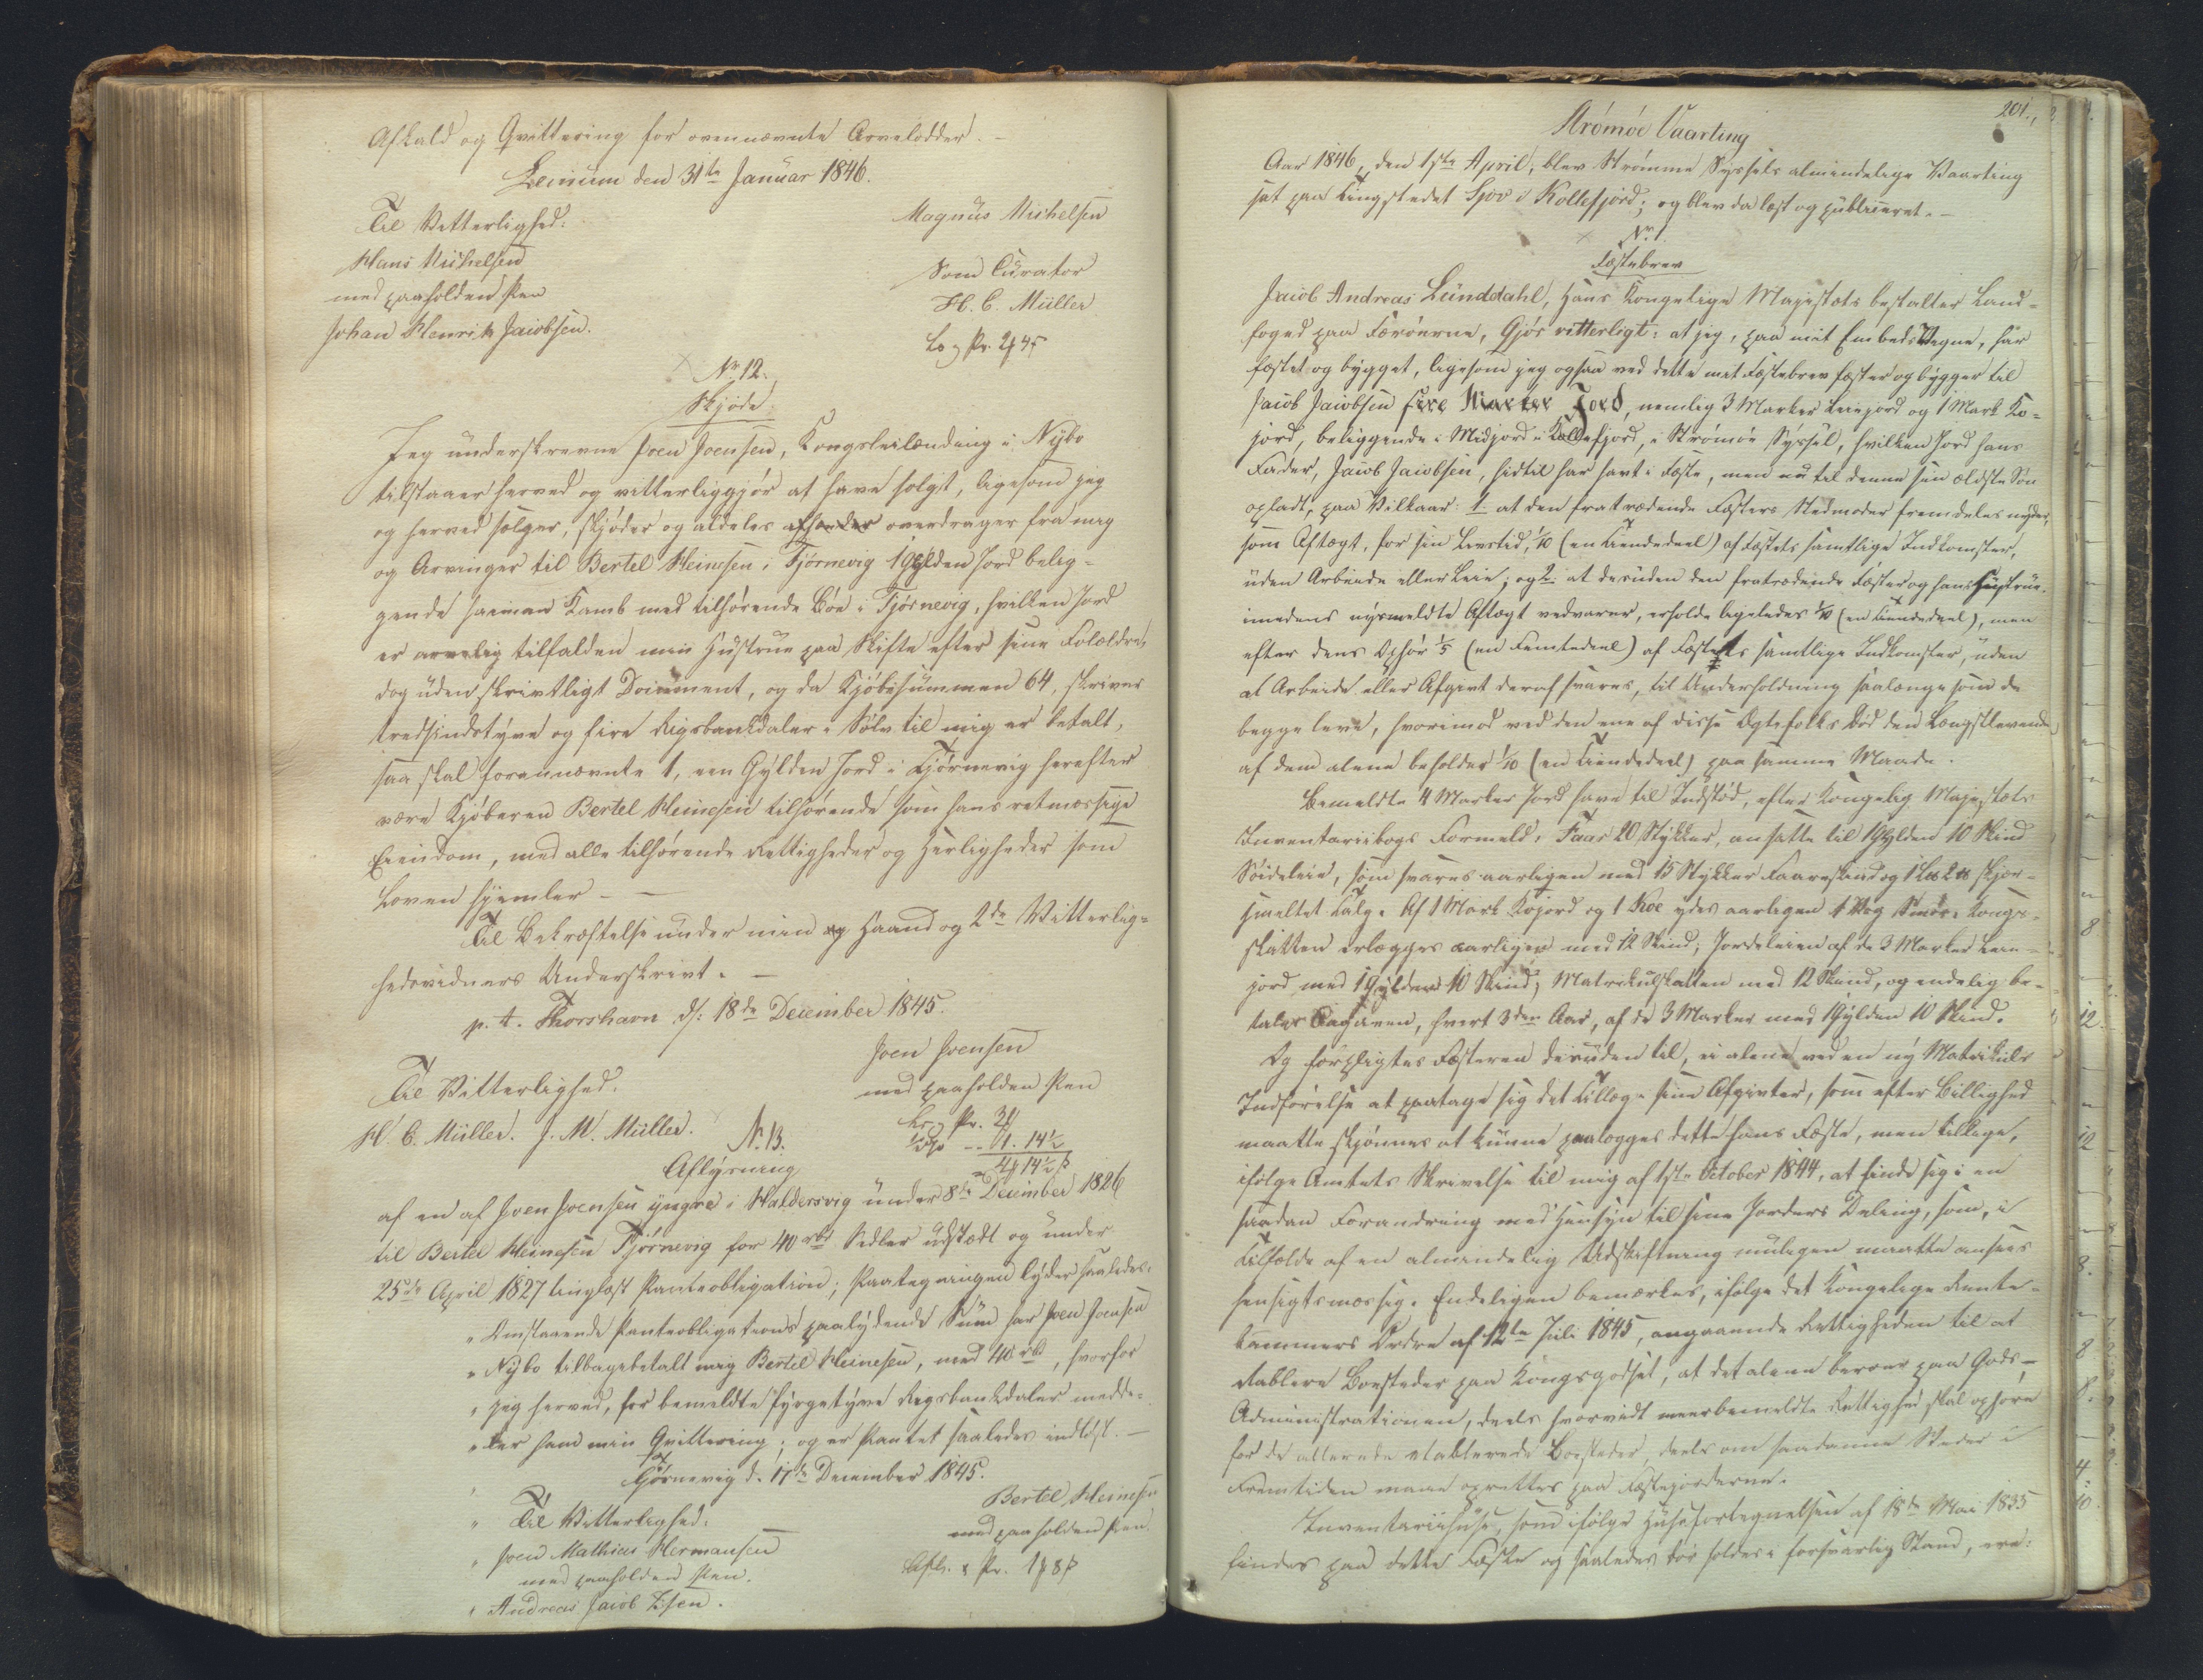 Afkald og Qvittering for ovennævnte Arvelodder. –
Leinum den 31te Januar 1846.
Til Vitterlighed:
Magnus Michelsen
Hans Michelsen
med paaholden Pen
Som Curator
H. C. Müller
Johan Henrik Jacobsen.
No 12.
Skjøde
Jeg underskrevne Joen Joensen, Kongsleilænding i Nybo
tilstaaer herved og vitterliggjør at have solgt, ligesom jeg
og herved sælger, skjøder og aldeles afhender overdrager fra mig
og Arvinger til Bertel Heinesen i Tjørnevig 1 Gylden Jord belig-
gende Lamb med tilhørende Bøe i Tjørnevig, hvilken Jord
er arvelig tilfalden min Hustrue paa Skifte efter sine Forældre,
dog uden skrivtligt Document, og da Kjøbesummen 64, skriver
tredsindstyve og fire Rigsbankdaler i Sølv til mig er betalt,
saa skal forannævnte 1, een Gylden Jord i Tjørnevig herefter
være Kjøberen Bertel Heinesen tilhørende som hans retmæssige
Eiendom, med alle tilhørende Rettigheder og Herligheder som
Loven hjemler –
Til Bekræftelse under min og Haand og 2de Vitterlig-
hedsvidners Underskrivt. –
p. t. Thorshavn d: 18de December 1845.
Joen Joensen
Til Vitterlighed.
med paaholden Pen
H. C. Müller. J. M. Müller.
No 13.
Aflysning
af en af Joen Joensen yngre i Haldersvig under 8de December 1826
til Bertel Heinesen Tjørnevig for 40 rbd Sedler udstædt og under
25de April 1827 tinglæst Panteobligation; Paategningen lyder saaledes:
„ Omstaaende Panteobligations paalydende Sum har Joen Joensen
„ Nybo tilbagebetalt mig Bertel Heinesen, med 40 rbd, hvorfor
„ jeg herved, for bemeldte fyrgetyve Rigsbankdaler medde-
„ ler ham min Qvittering; og er Pantet saaledes indløst. –
Tjørnevig d. 17de December 1845.
Bertel Heinesen
„ Til Vitterlighed:
med paaholden Pen
„ Joen Mathias Hermansen
med paaholden Pen.
„ Andreas Jacob
201.
Strømøe Vaarting
Aar 1846, den 1ste April, blev Strømøe Syssels almindelige Vaarting
sat paa Tingstedet Sjov i Kollefjord; og blev da læst og publiceret. –
No 1.
Fæstebrev
Jacob Andreas Lunddahl, Hans Kongelige Majestæts bestalter Land-
foged paa Færøerne, Gjør vitterligt: at jeg, paa mit Embeds Vegne, har
fæstet og bygget, ligesom jeg ogsaa ved dette mit Fæstebrev fæster og bygger til
Jacob Jacobsen fire Marker Jord, nemlig 3 Marker Leiejord og 1 Mark Ko-
jord, beliggende i Midjord i Kollefjord, i Strømøe Syssel, hvilken Jord hans
Fader, Jacob Jacobsen, hidtil har havt i Fæste, men nu til denne sin ældste Søn
opladt, paa Vilkaar: 1. at den fratrædende Fæsters Stedmoder fremdeles nyder,
som Aftægt, for sin Levetid, 1/10 (en Tiendedeel) af Fæstets samtlige Indkomster,
uden Arbeide eller Leie; og 2. at desuden den fratrædende Fæster og hans Hustrue
imedens nysmeldte Aftægt vedvarer, erholde ligeledes 1/10 (en Tiendedeel), men
efter dens Ophør 1/5 (en Femtedeel) af Fæstets samtlige Indkomster, uden
at Arbeide eller Afgivt deraf svares, til Underholdning saalænge som de
begge leve, hvorimod ved den ene af disse Ægtefolks Død den Længstlevende
af dem alene beholder 1/10 (en Tiendedeel) paa samme Maade.
Bemeldte 4 Marker Jord have til Indstød, efter Kongelig Majestæts
Inventariibogs Formeld, Faar 20 Stykker, ansatte til 1 Gylden 10 Skind
Søideleie, som svares aarligen med 15 Stykker Faareskind og
smeltet Talg. Af 1 Mark Kojord og 1 Koe ydes aarligen 1 Vog Smør. Kongs-
skatten erlægges aarligen med 12 Skind; Jordeleien af de 3 Marker Leie-
jord med 1 Gylden 10 Skind; Matrikulskatten med 12 Skind, og endelig be-
tales hvert 3die Aar, af de 3 Marker med 1 Gylden 10 Skind.
Og forpligtes Fæsteren desuden til, ei alene ved en ny Matrikuls
Indførelse at paatage sig det Tillæg i sine Afgivter, som efter Billighed
maatte skjønnes at kunne paalægges dette hans Fæste, men tillige,
ifølge Amtets Skrivelse til mig af 1ste October 1844, at finde sig i en
saadan Forandring med Hensyn til sine Jorders Deling, som, i
Tilfælde af en almindelig Udskiftning muligen maatte ansees
hensigtsmæssig. Endeligen bemærkes, ifølge det Kongelige Rente-
kammers Ordre af 12te Juli 1845, angaaende Rettigheden til at
etablere Boesteder paa Kongsgodset, at det alene beroer paa Gods-
Administrationen, deels hvorvidt meerbemeldte Rettighed skal ophøre
for de allerede etablerede Boesteder, deels om saadanne Steder i
Fremtiden maae oprettes paa Fæstejorderne.
Inventariihuse, som ifølge Husefortegnelsen af 18de Mai 1835
findes paa dette Fæste og saaledes bør holdes i forsvarlig Stand, ere: